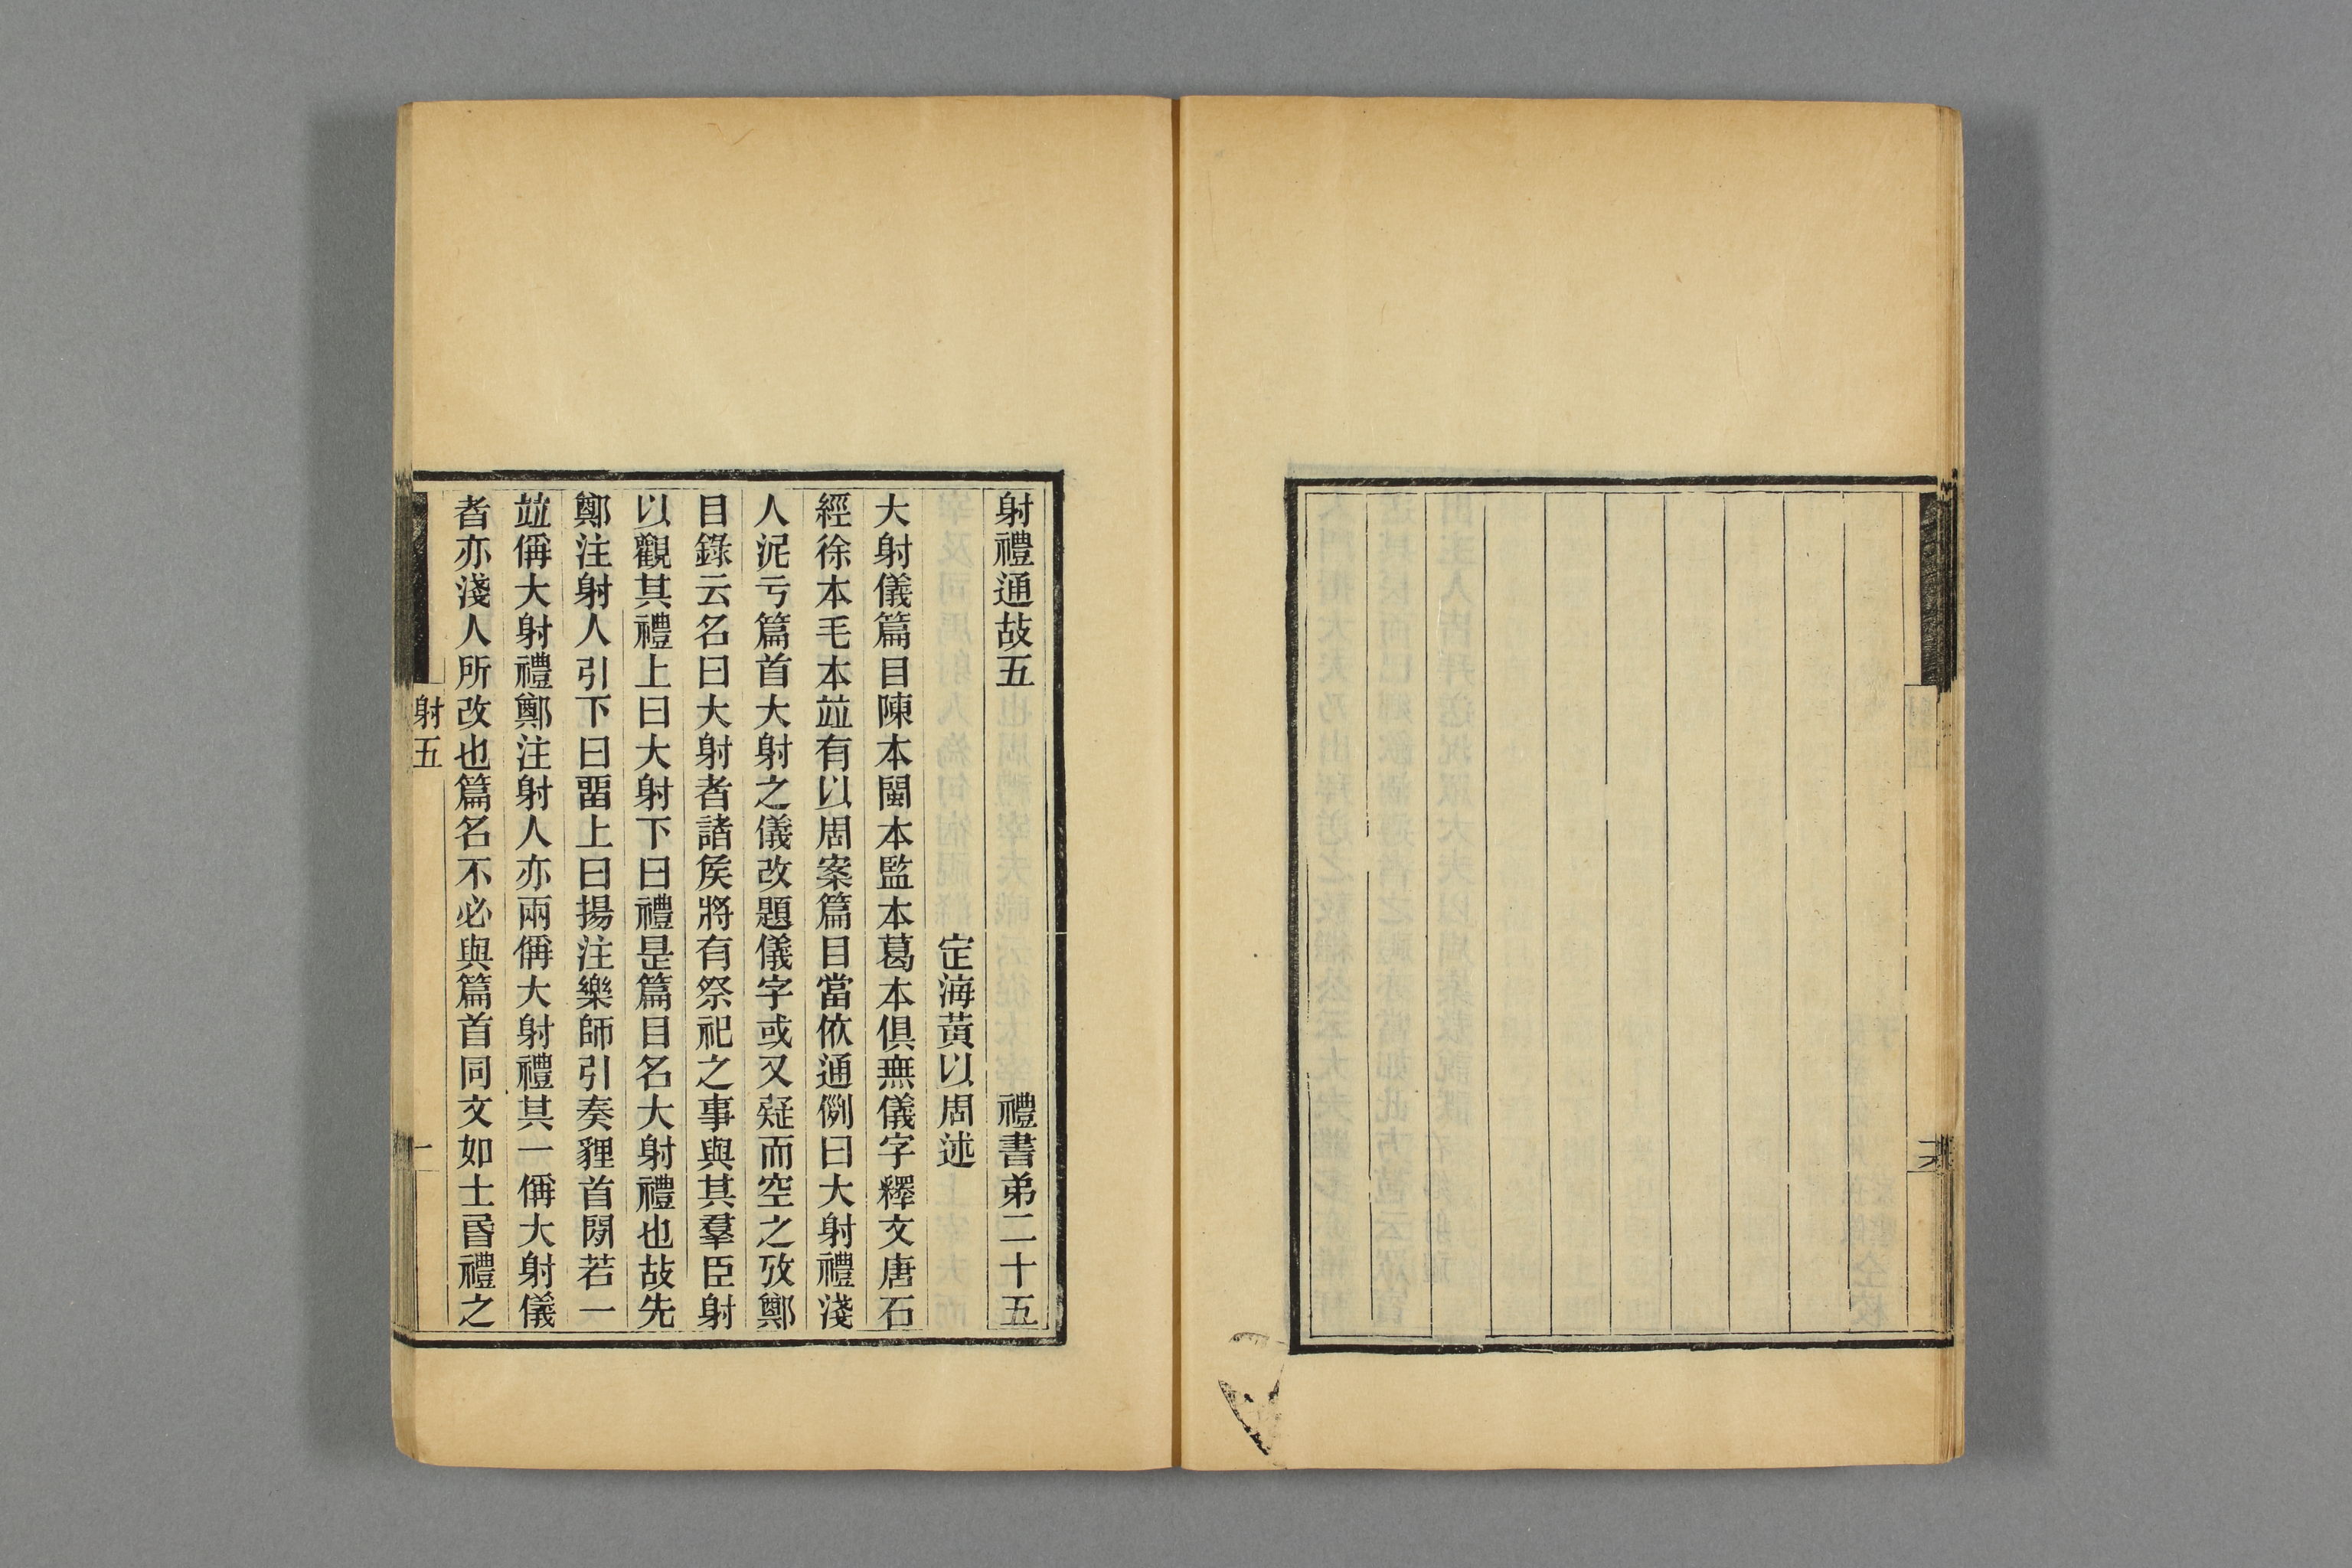 射禮通故五　禮書弟二十五
定海黃以周述
大射儀篇目陳本閩本監本葛本俱無儀字釋文唐石
經徐本毛本竝有以周案篇目當依通例曰大射禮淺
人泥亏篇首大射之儀改題儀字或又疑而空之攷鄭
目錄云名曰大射者諸矦將有祭祀之事與其羣臣射
以觀其禮上曰大射下曰禮是篇目名大射禮也故先
鄭注射人引下曰畱上曰揚注樂師引奏貍首閒若一
竝偁大射禮鄭注射人亦兩偁大射禮其一偁大射儀
者亦淺人所改也篇名不必與篇首同文如士昏禮之
射五
一